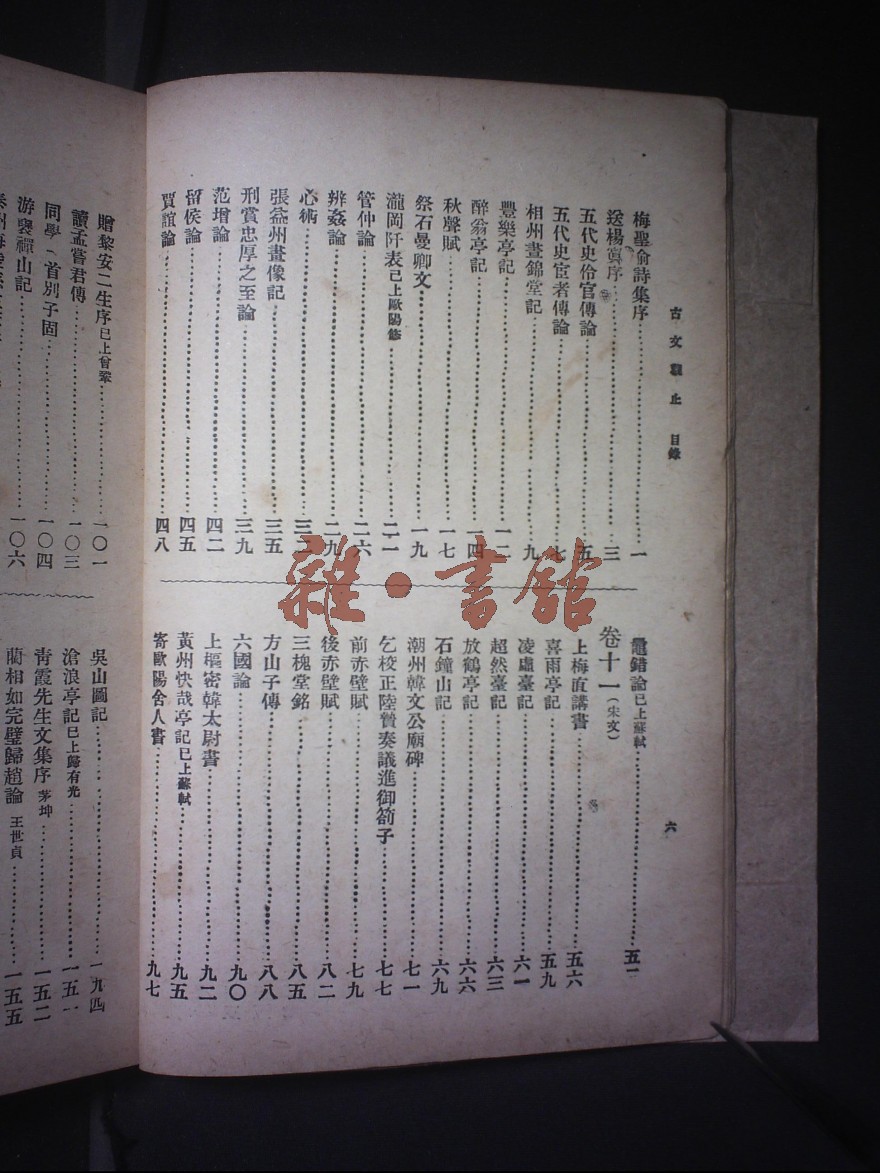 古文觀止 目錄
六
梅聖俞詩集序……一
送楊寘序……三
五代史伶官傳論……五
五代史宦者傳論……七
相州晝錦堂記……九
豐樂亭記……一二
醉翁亭記……一四
秋聲賦……一七
祭石曼卿文……一九
瀧岡阡表已上歐陽修……二一
管仲論……二六
辨姦論……二九
心術……三二
張益州畫像記……三五
刑賞忠厚之至論……三九
范增論……四二
留侯論……四五
賈誼論……四八
鼂錯論已上蘇軾……五一
卷十一(宋文)
上梅直講書……五六
喜雨亭記……五九
凌虛臺記……六一
超然臺記……六三
放鶴亭記……六六
石鐘山記……六九
潮州韓文公廟碑……七一
乞校正陸贄奏議進御劄子……七七
前赤壁賦……七九
後赤壁賦……八二
三槐堂銘……八五
方山子傳……八八
六國論……九〇
上樞密韓太尉書……九二
黃州快哉亭記已上蘇轍……九五
寄歐陽舍人書……九七
贈黎安二生序已上曾鞏……一〇一
讀孟嘗君傳……一〇三
同學一首別子固……一〇四
游褒禪山記……一〇六
吳山圖記……一四九
滄浪亭記已上歸有光……一五一
青霞先生文集序 茅坤……一五二
藺相如完璧歸趙論 王世貞……一五五
雜·書館